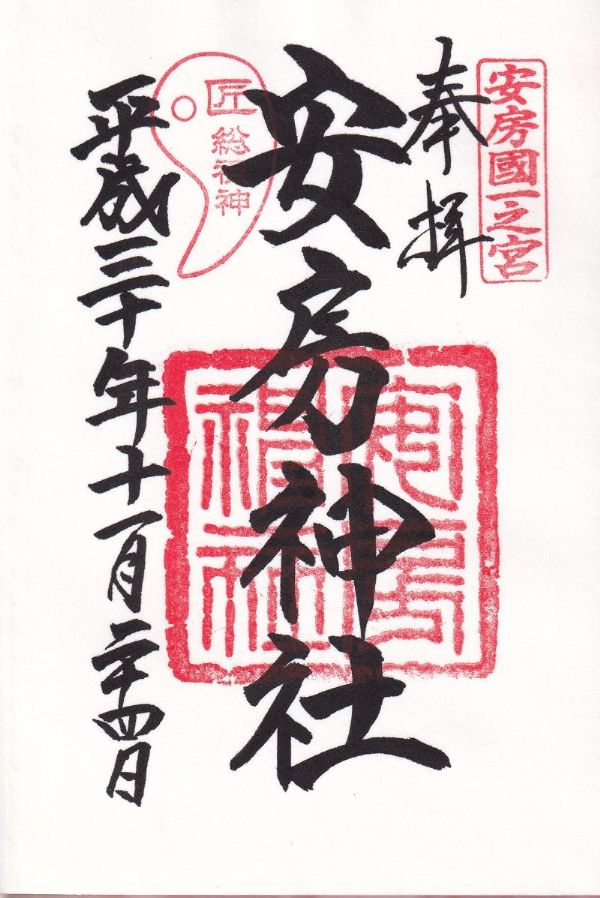 安房國一之宮
奉拝
安房神社
安房神社
匠
総祖神
平成三十年十一月二十四日